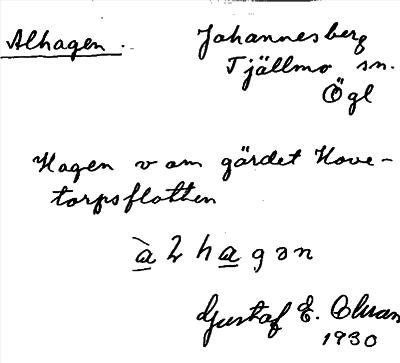 Alhagen.
Johannesberg
Tjällmo sn.
Ögl
Hagen v om gärdet Hove-
torpsflotten
à2hagən
Gustaf E.
1930